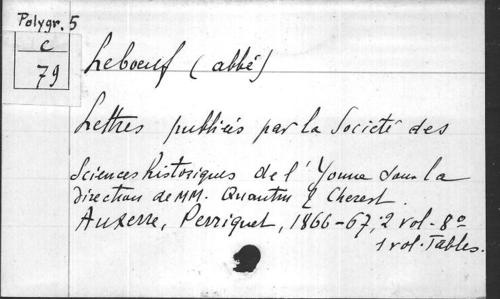 Polygr. 5
C
79
Leboeuf (abbé)
Lettres publiées par la Société des
Sciences historiques de l'Yonne sous la
direction de MM. Quantin & Cherest.
Auxerre, Perriquet, 1866-67, 2 vol. 8º
1 vol. Tables.